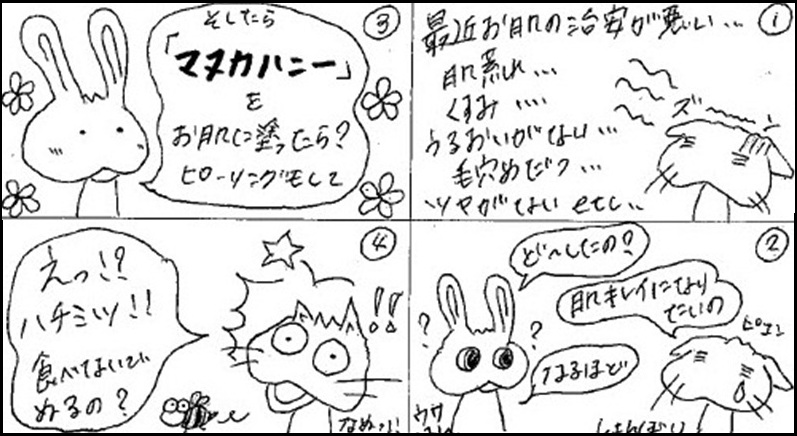 ①
最近お肌の治安が悪い…
肌荒れ…
くすみ…
うるおいがない…
毛穴めだつ…
ツヤがない etc…
ズーン
②
ど〜したの？
肌キレイになり
たいの
ピエン
なるほど
？
？
ウサ
しょんぼり
③
そしたら
「マヌカハニー」
を
お肌に塗ったら？
ピローリングもして
④
えっ！？
ハチミツ！！
食べてないで
ぬるの？
！！
なぬっ！